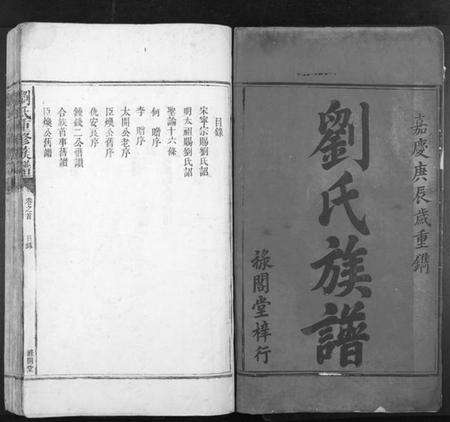 嘉慶庚辰歲重鐫
劉氏族譜
祿閣堂梓行
目錄
宋寧宗賜劉氏詔
明太祖賜劉氏詔
聖諭十六條
何贈序
李贈序
太開公老序
臣幾公舊序
仇安氏序
鍾錢二公舊讚
合族舊事舊讀
臣幾公舊讚
劉氏重修族譜
卷之首
目錄
祿閣堂